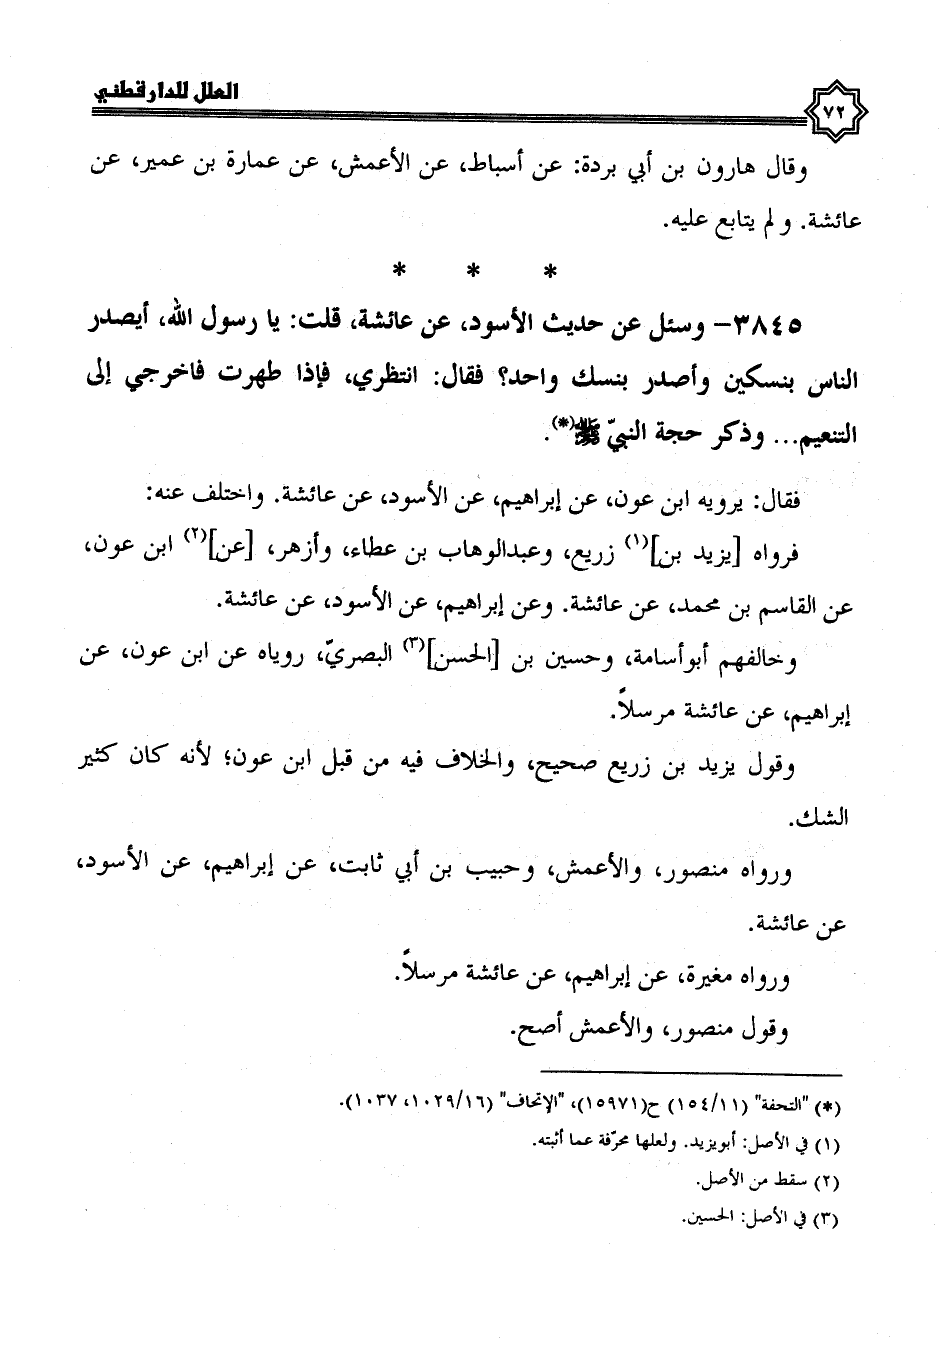 العلل للدارقطني
٧٢
وقال هارون بن أبي بردة: عن أسباط، عن الأعمش، عن عمارة بن عمير، عن
عائشة. ولم يتابع عليه.
* * *
٣٨٤٥- وسئل عن حديث الأسود، عن عائشة، قلت: يا رسول الله، أيصدر
الناس بنسكين وأصدر بنسك واحد؟ فقال: انتظري، فإذا طهرت فاخرجي إلى
التنعيم... وذكر حجة النبيّ ﷺ(*).
فقال: يرويه ابن عون، عن إبراهيم، عن الأسود، عن عائشة. واختلف عنه:
فرواه [يزيد بن](١) زريع، وعبدالوهاب بن عطاء، وأزهر، [عن](٢) ابن عون،
عن القاسم بن محمد، عن عائشة. وعن إبراهيم، عن الأسود، عن عائشة.
وخالفهم أبوأسامة، وحسين بن [الحسن](٣) البصريّ، روياه عن ابن عون، عن
إبراهيم، عن عائشة مرسلاً.
وقول يزيد بن زريع صحيح، والخلاف فيه من قبل ابن عون؛ لأنه كان كثير
الشك.
ورواه منصور، والأعمش، وحبيب بن أبي ثابت، عن إبراهيم، عن الأسود،
عن عائشة.
ورواه مغيرة، عن إبراهيم، عن عائشة مرسلاً.
وقول منصور، والأعمش أصح.
(*) "التحفة" (١٥٤/١١) ح(١٥٩٧١)، "الإتحاف" (١٠٢٩/١٦، ١٠٣٧).
(١) في الأصل: أبويزيد. ولعلها محرّفة عما أثبته.
(٢) سقط من الأصل.
(٣) في الأصل: الحسين.